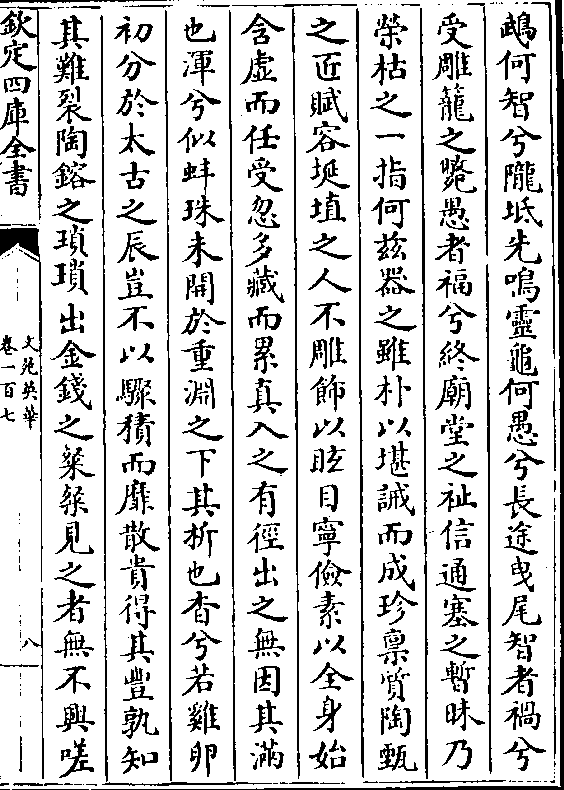 鵡何智兮隴坻先鳴靈龜何愚兮長途曳尾智者禍兮
受雕籠之斃愚者福兮終廟堂之祉信通塞之暫昧乃
榮枯之一指何兹器之雖朴以堪誡而成珍禀質陶甄
之匠賦容埏埴之人不雕飾以眩目寧儉素以全身始
含虚而任受忽多藏而累真入之有徑出之無因其滿
也渾兮似蚌珠未開於重淵之下其㭊也杳兮若雞卵
初分於太古之辰豈不以驟積而靡散貴得其豐孰知
其難裂陶鎔之瑣瑣出金錢之粲粲見之者無不興嗟
欽定四庫全書
文苑英華
卷一百七
八